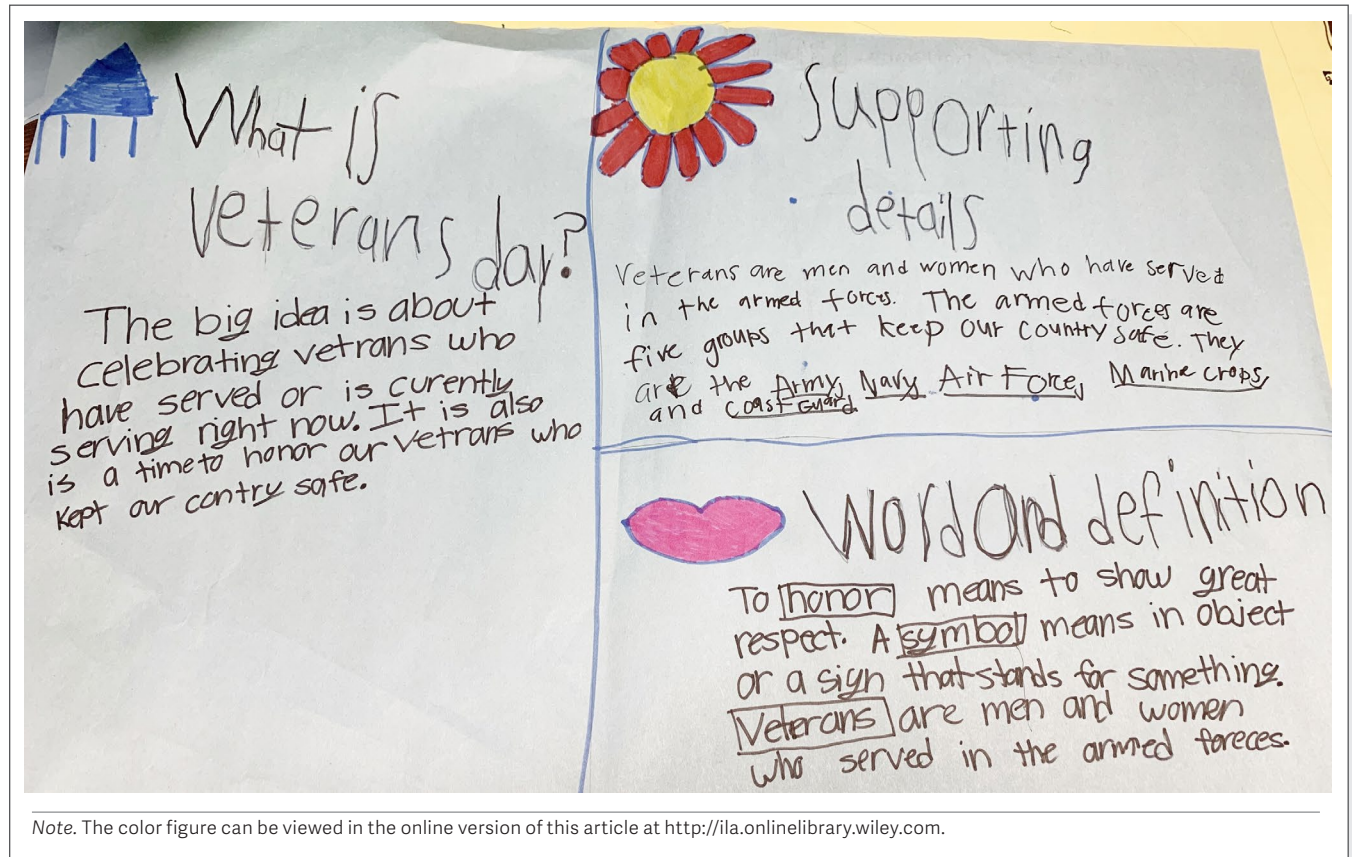 What is
veterans day?
The big idea is about
celebrating vetrans who
have served or is curently
serving right now. It is also
is a time to honor our vetrans who
kept our contry safe.
Supporting
details
Veterans are men and women who have served
in the armed forces. The armed forces are
five groups that keep our country safe. They
are the Army, Navy, Air Force, Marine crops,
and coast Guard.
Word and definition
To honor means to show great
respect. A symbol means in object
or a sign that stands for something.
Veterans are men and women
who served in the armed foreces.
Note. The color figure can be viewed in the online version of this article at http://ila.onlinelibrary.wiley.com.